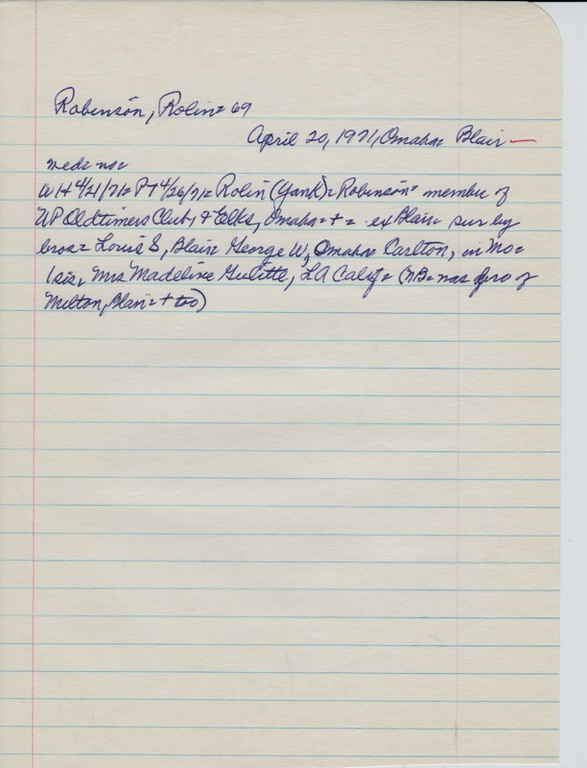 Robinson, Rolin= 69
April 20, 1971, Omaha= Blair —
wed= no=
WH 4/21/71= PT 4/26/71= Rolin (Yank)= Robinson= member of
UP Oldtimers Club, & Elks, Omaha= + = ex Blair= sur by
bros= Louis S, Blair= George W, Omaha= Carlton, in Mo=
1 sis, Mrs Madeline, LA Calif= (NB= was bro of
Milton, Blair= + too)